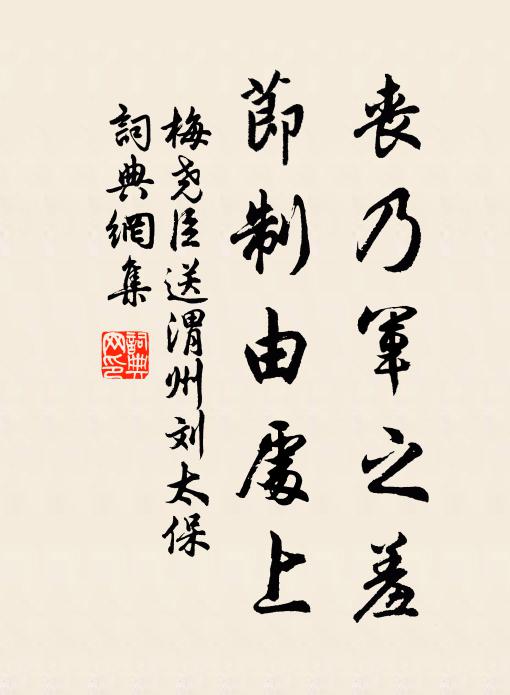 丧乃军之羞
節制由處上
梅尧臣送渭州刘太保
詞典網集
詞典网印